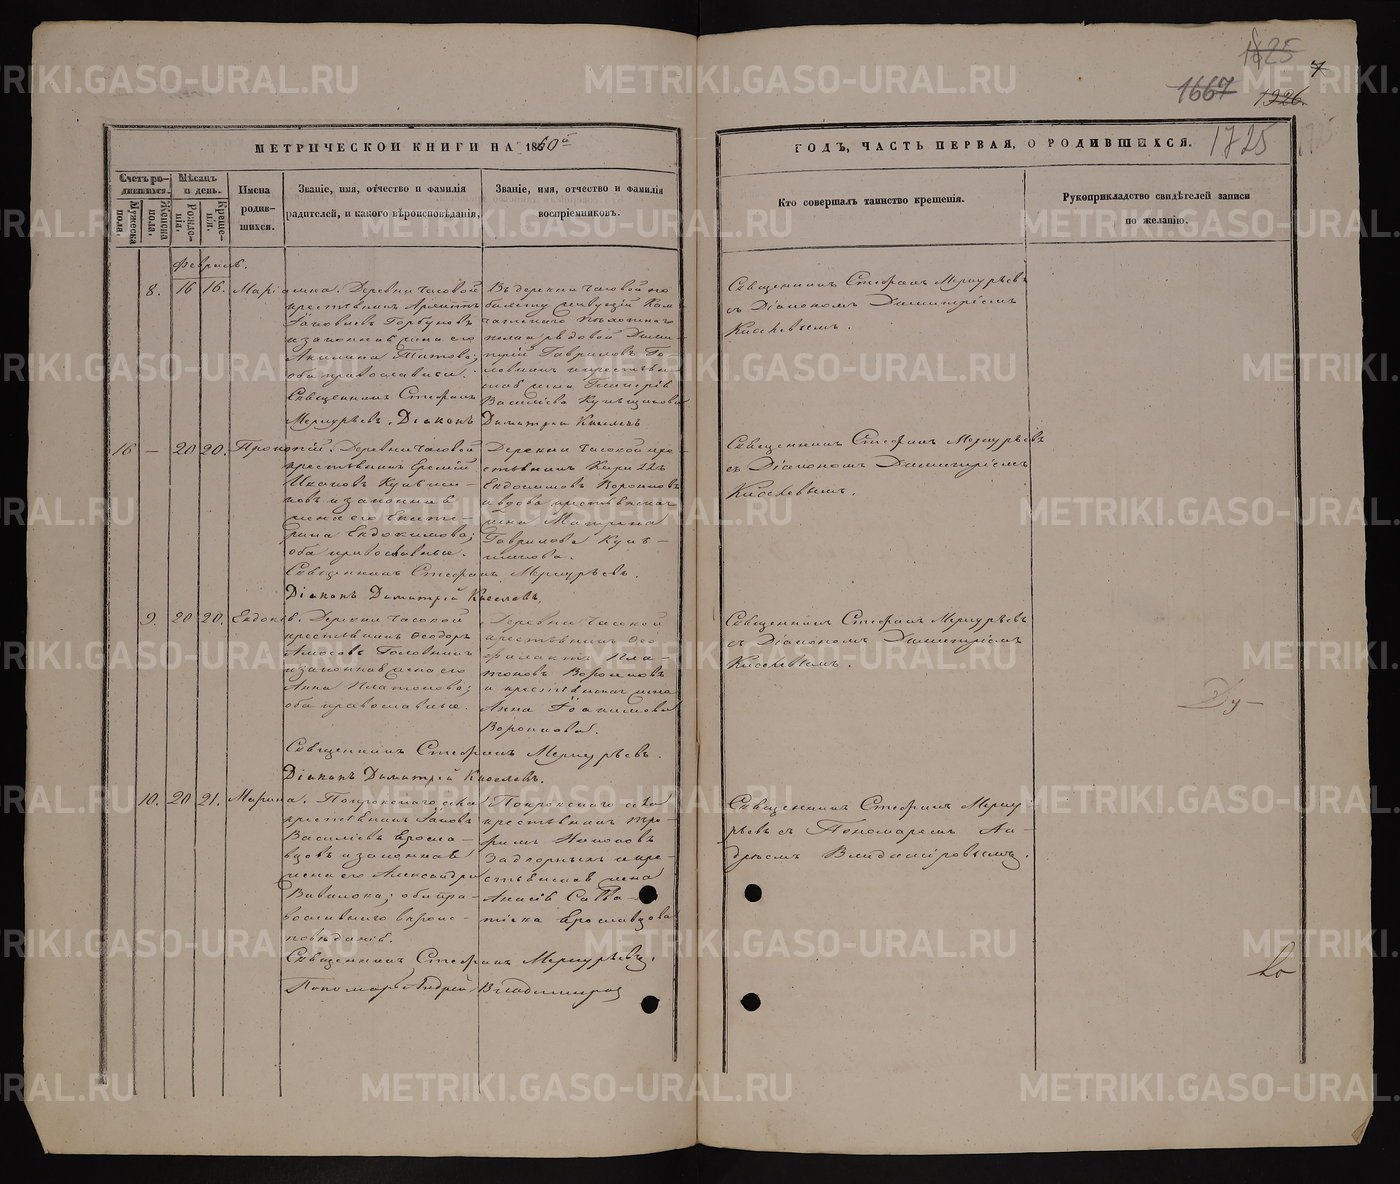 1825
7
1667 1926.
МЕТРИЧЕСКОЙ КНИГИ НА 1860й
ГОДЪ, ЧАСТЬ ПЕРВАЯ, О РОДИВШИХСЯ. 1725
Счетъ ро-
дившихся.
Мужеска
пола.
Женска
пола.
Мѣсяцъ
и день.
Рожде-
нія.
Креще-
нія.
Имена
родив-
шихся.
Званіе, имя, отчество и фамилія
родителей, и какого вѣроисповѣданія,
Званіе, имя, отчество и фамилія
воспріемниковъ.
Кто совершалъ таинство крещенія.
Рукоприкладство свидѣтелей записи
по желанію.
Февраль.
8. 16 16. Маріамна. Деревни Часовой
крестьянинъ
Яковлевъ Горбуновъ
и законная жена его
Акилина Титова;
оба православные.
Священникъ Стефанъ
Меркурьевъ. Діаконъ Димитрій Киселевъ
Въ деревни Часовой по
билету живущій Кам
чатскаго
полка рядовой Дими-
трій Гавриловъ Го-
ловинъ и крестьян
ская жена Гликерія
Васильева Кукъщикова
Священникъ Стефанъ Меркурьевъ
съ Діакономъ Димитріемъ
Киселевымъ.
16 — 20 20. Прокопій. Деревни Часовой
крестьянинъ Еремій
Ивановъ
и законная
жена его Екате-
рина Евдокимова;
оба православные.
Священникъ Стефанъ Меркурьевъ.
Діаконъ Димитрій Киселевъ.
Деревни Часовой кре-
стьянинъ
Евдокимовъ Вороновъ
и вдова крестьянская
жена Матрена
Гаврилова
Священникъ Стефанъ Меркурьевъ
съ Діакономъ Димитріемъ
Киселевымъ.
9. 20 20. Евдокія. Деревни Часовой
крестьянинъ Ѳеодоръ
Амосовъ Головинъ
и законная жена его
Анна Платонова;
оба православные.
Священникъ Стефанъ Меркурьевъ.
Діаконъ Димитрій Киселевъ.
Деревни Часовой
крестьянинъ Ѳео-
филактъ Пла-
тоновъ Вороновъ
и крестьянская жена
Анна Іоакимова
Воронова.
Священникъ Стефанъ Меркурьевъ
съ Діакономъ Димитріемъ
Киселевымъ.
Ду-
10. 20 21. Марина. Покровскаго села
крестьянинъ Іаковъ
Васильевъ Яросла-
вцовъ и законная
жена его Александра
Вавилова; оба пра-
вославнаго вѣроис-
повѣданія.
Священникъ Стефанъ Меркурьевъ.
Пономарь Андрей Владимировъ
Покровскаго села
крестьянинъ Тро-
фимъ
Задорныхъ и кре-
стьянская жена
Анисія Савва-
тіева Ярославцова
Священникъ Стефанъ Мерку
рьевъ съ Пономаремъ Ан-
дреемъ Владиміровымъ.
METRIKI.GASO-URAL.RU